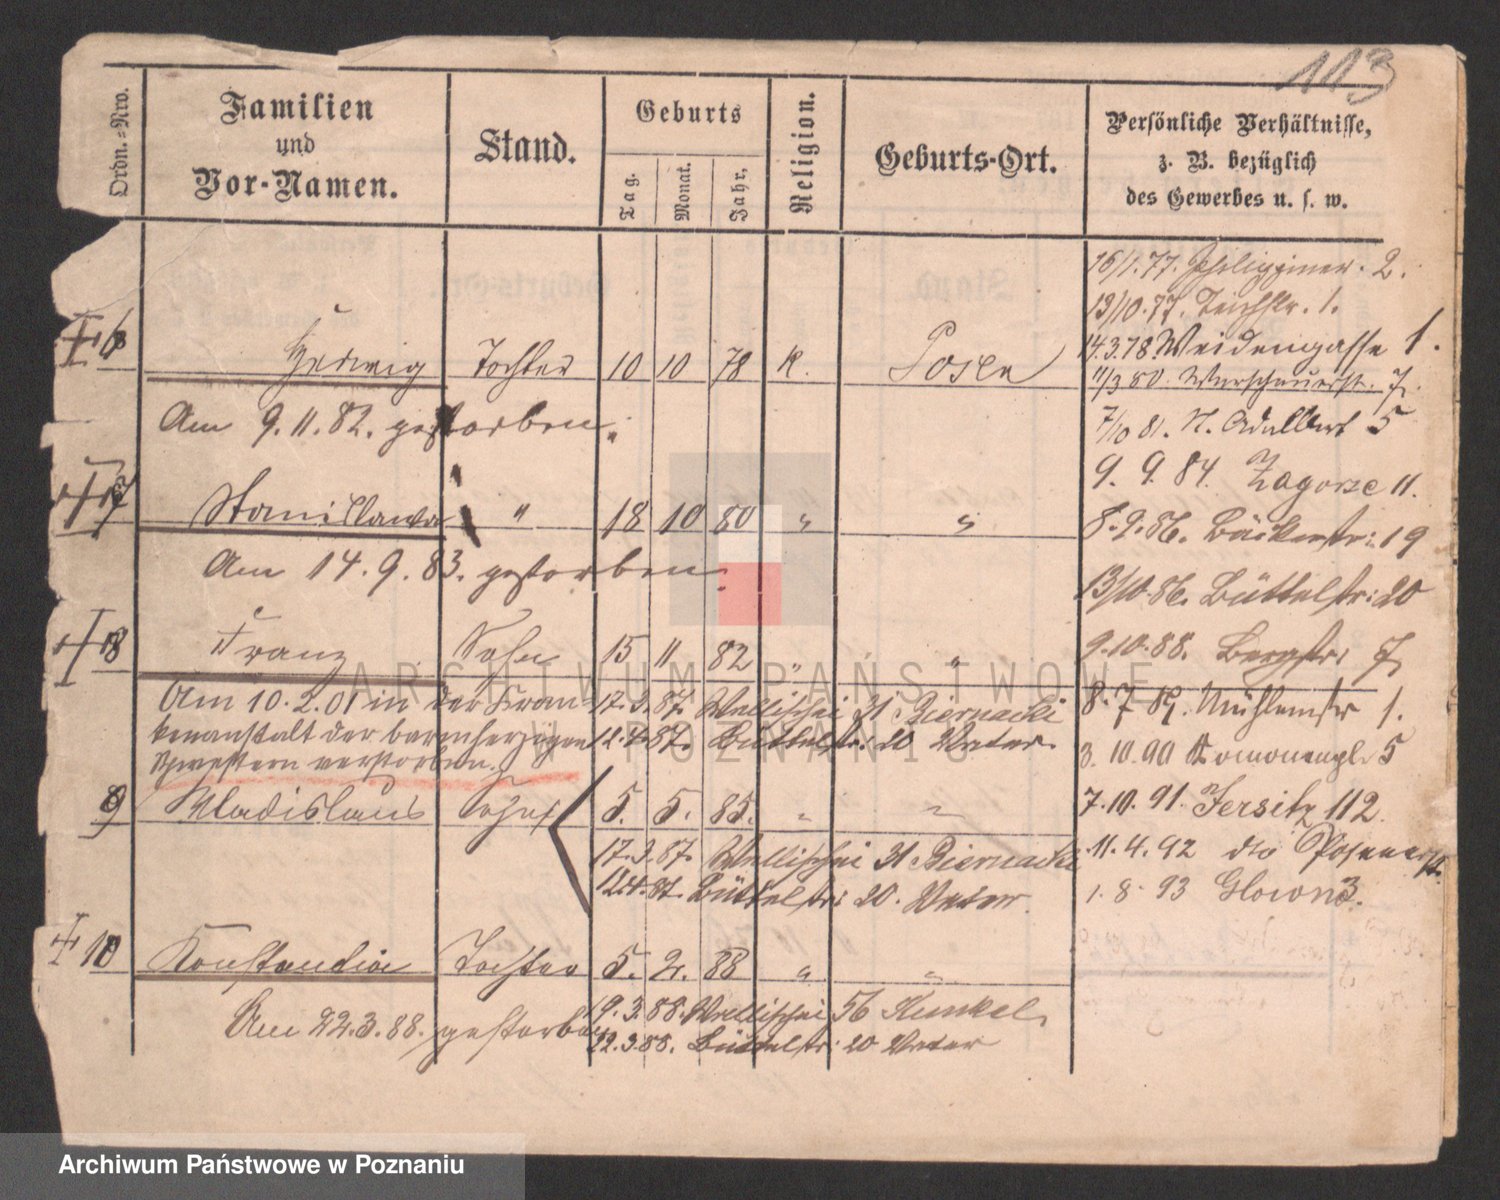 113
Ordn.=Nro.
Familien
und
Vor-Namen.
Stand.
Geburts
Tag.
Monat.
Jahr.
Religion.
Geburts-Ort.
Persönliche Verhältnisse,
z. B. bezüglich
des Gewerbes u. s. w.
6 Hedwig Tochter 10 10 78 K. Posen
Am 9.11.82. gestorben.
7 Stanislawa " 18 10 80 " "
Am 14.9.83. gestorben.
8 Franz Sohn 15 11 82 " "
Am 10.2.01 in der Kran-
kenanstalt der barmherzigen
Schwestern verstorben.
17.3.87. Wallischei 31 Biernacki
12.4.87. Büttelstr: 20 Vater.
9 Wladislaus Sohn 5. 5. 85. " "
17.3.87. Wallischei 31 Biernacki
12.4.87. Büttelstr: 20. Vater.
10 Konstandia Tochter 5. 2. 88 " "
Am 22.3.88. gestorben
19.3.88. Wallischei 56 Kunkel
22.3.88. Büttelstr: 20 Vater
16/1.77. 2.
13/10.77. Teichstr. 1.
14.3.78 Weidengasse 1.
11/3 80. Warschauerstr. 7
7/10 81. St. Adalbert 5
9. 9. 84. Zagorze 11.
8.9.86. Bäckerstr: 19
13/10.86. Büttelstr: 20
9.10.88. Bergstr: 7
8.7.89. Mühlenstr 1.
3.10.90 5
7.10.91. Jersitz 112.
11.4.92 dto Posenerstr.
1.8.93 Glowno 3.
ARCHIWUM PAŃSTWOWE
W POZNANIU
Archiwum Państwowe w Poznaniu